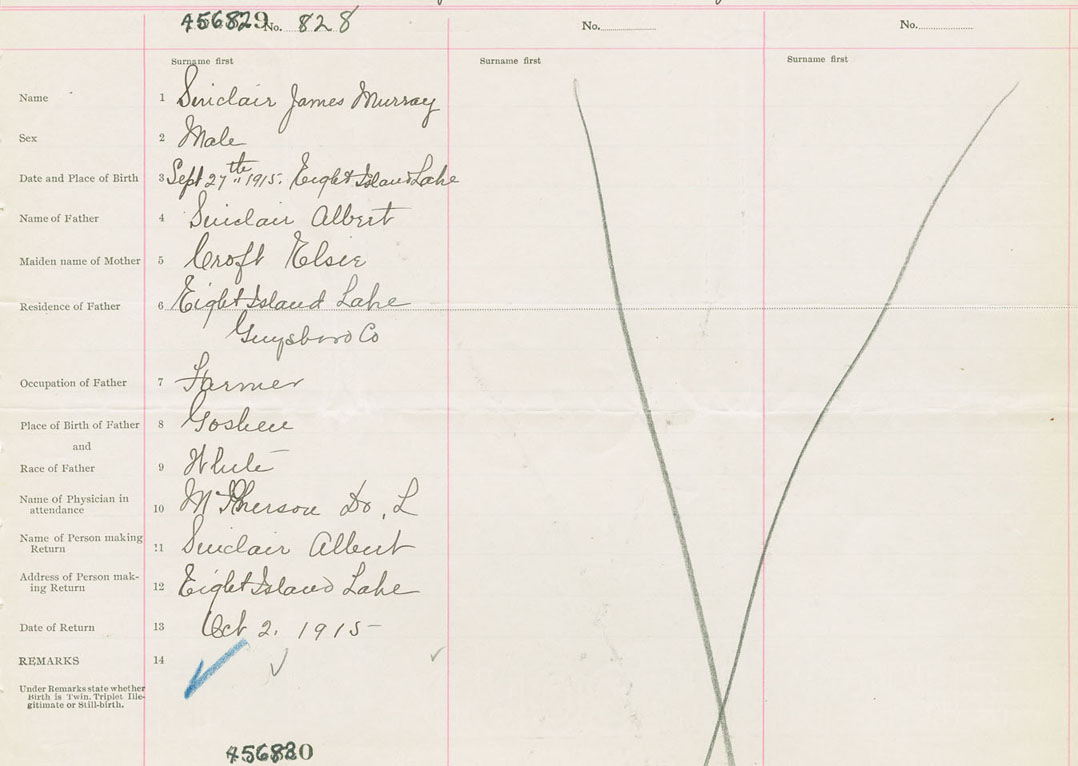 456829 No. 828 No. No.
Surname first Surname first Surname first
Name 1 Sinclair James Murray
Sex 2 Male
Date and Place of Birth 3 Sept 27th 1915. Eight Island Lake
Name of Father 4 Sinclair Albert
Maiden name of Mother 5 Croft Elsie
Residence of Father 6 Eight Island Lake
Guysboro Co
Occupation of Father 7 Farmer
Place of Birth of Father 8 Goshen
and
Race of Father 9 White
Name of Physician in
attendance 10 McPherson Do, L
Name of Person making
Return 11 Sinclair Albert
Address of Person mak-
ing Return 12 Eight Island Lake
Date of Return 13 Oct 2. 1915
REMARKS 14
Under Remarks state whether
Birth is Twin, Triplet Ille-
gitimate or Still-birth.
456830